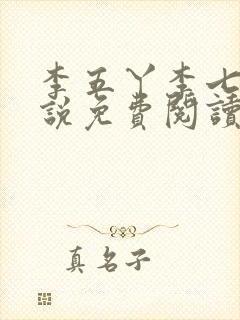 李五丫李七
說免費閱讀
真名子